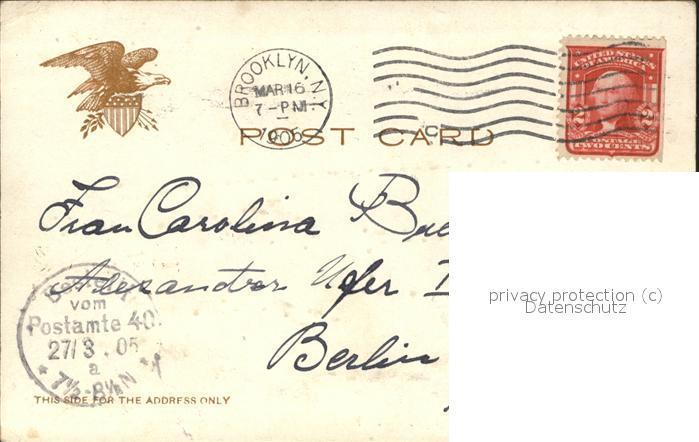 BROOKLYN, N.Y.
MAR 16
7-PM
1905
UNITED STATES
OF AMERICA
2 2
POSTAGE
TWO CENTS
POST CARD
Frau Carolina
Alexander Ufer
Berlin
vom
Postamte 40.
27/3.05
a
* 7½-8½N *
privacy protection (c)
Datenschutz
THIS SIDE FOR THE ADDRESS ONLY